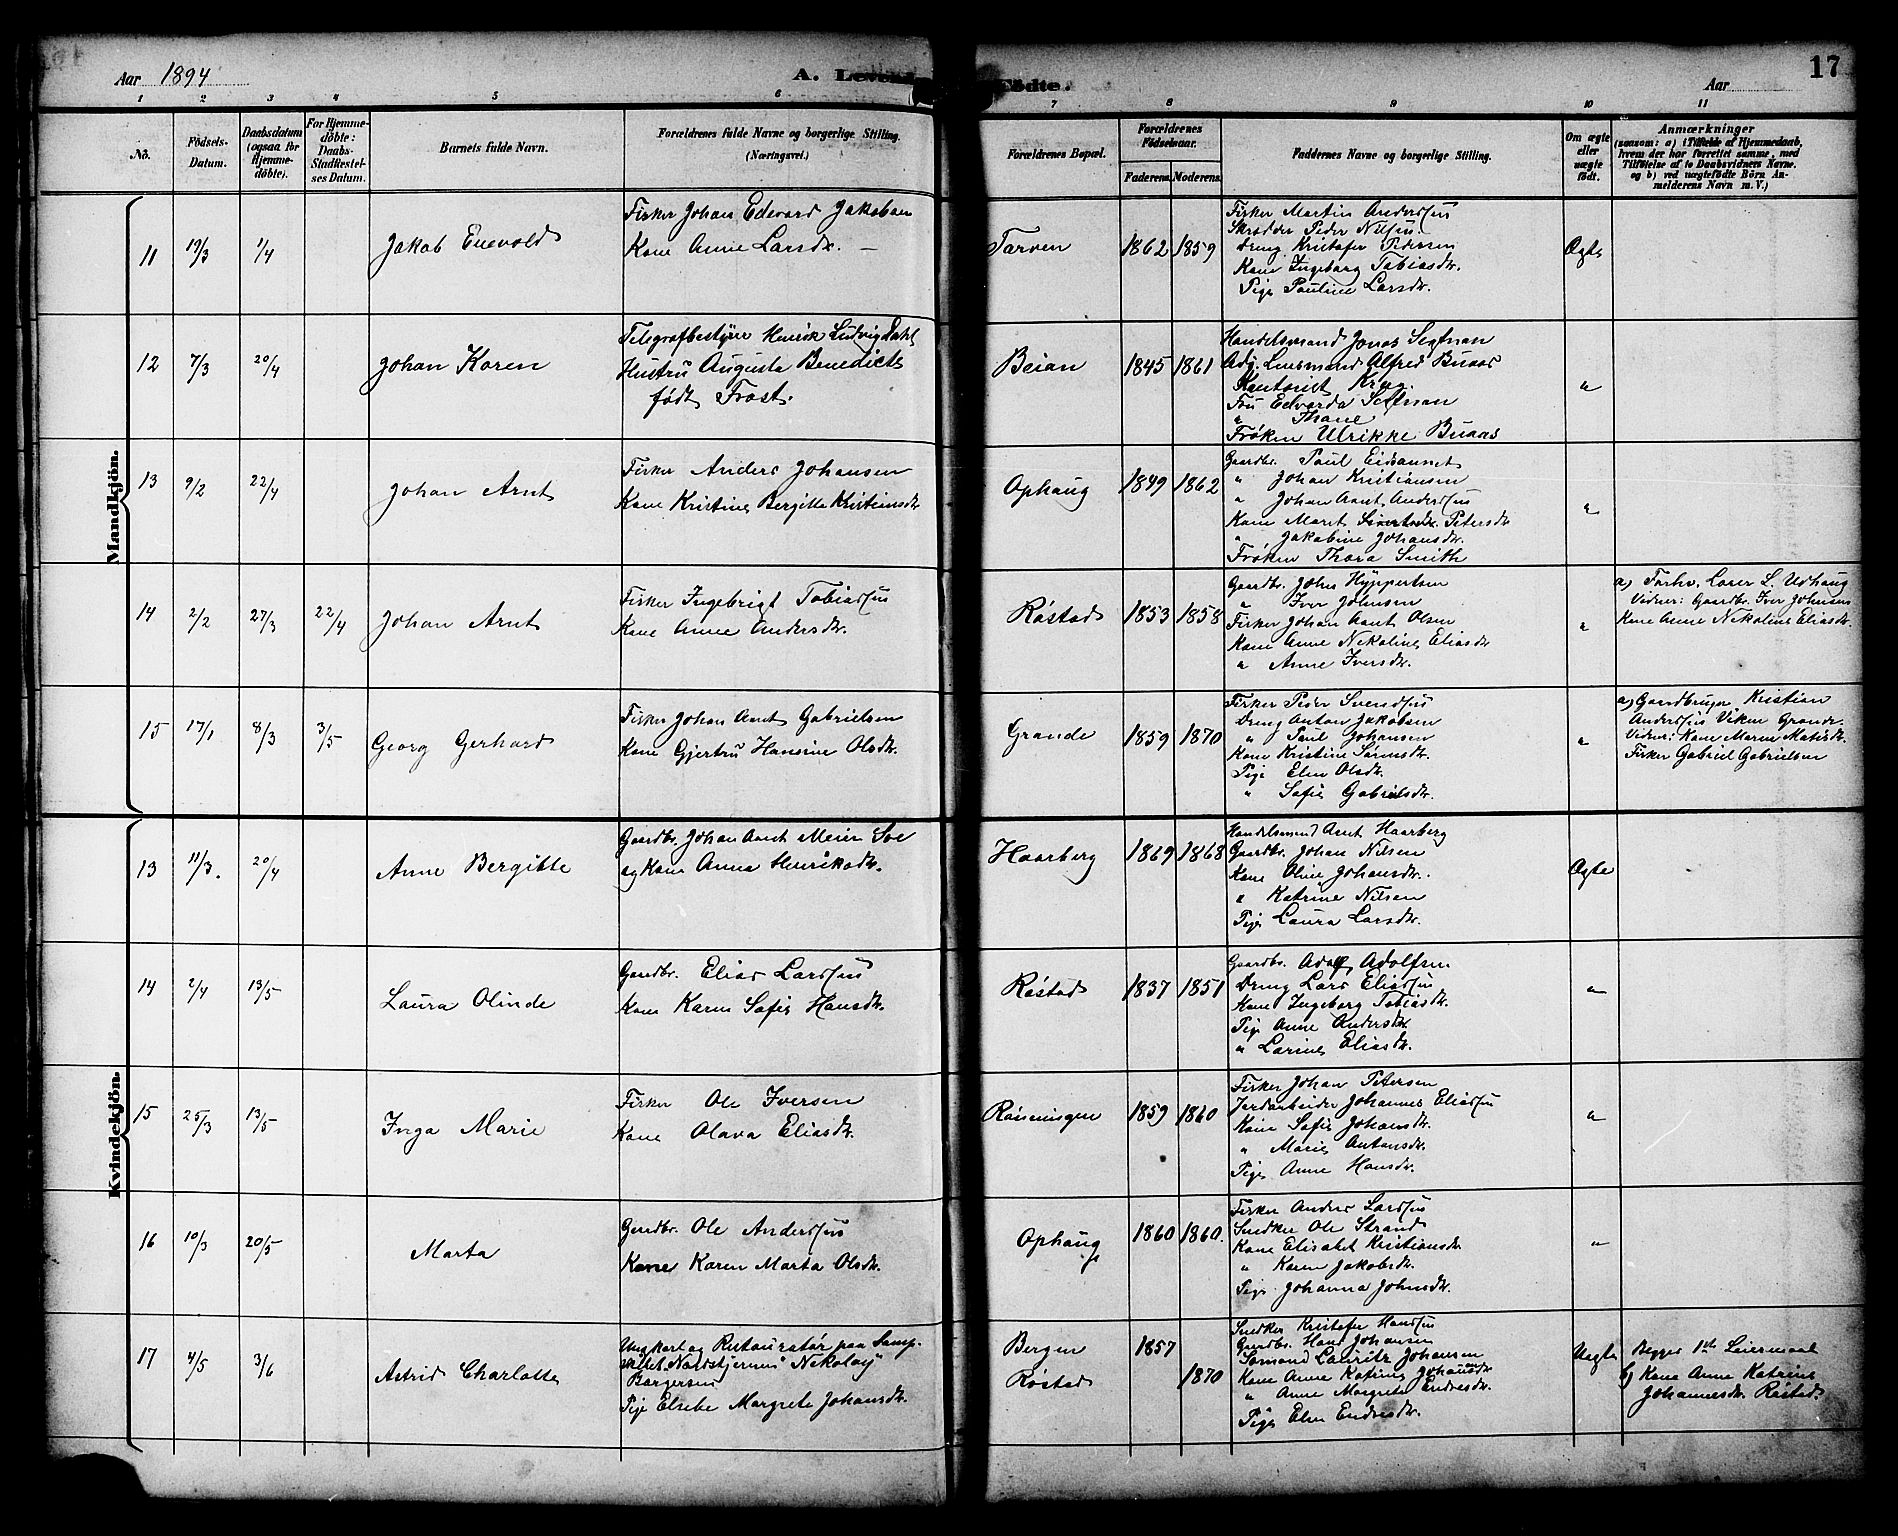 Aar 1894
A. Levende Fødte.
Aar
17
1 2 3 4 5 6 7 8 9 10 11
No.
Fødsels-Datum.
Daabsdatum (ogsaa for Hjemme-døbte).
For Hjemme-døbte: Daabs-Stadfæstel-ses Datum.
Barnets fulde Navn.
Forældrenes fulde Navne og borgerlige Stilling. (Næringsvei.)
Forældrenes Bopæl.
Forældrenes Fødselsaar.
Faderens. Moderens.
Faddernes Navne og borgerlige Stilling.
Om ægte eller uægte født.
Anmærkninger
(saasom: a) i Tilfælde af Hjemmedaab, hvem der har forrettet samme, med Tilføielse af to Daabsvidners Navne. og b) ved uægtefødte Børn An-melderens Navn m. V.)
Mandkjøn.
11 19/3 1/4 Jakob Enevold
Fisker Johan Edevard Jakobsen
Kone Anne Larsdr. —
Tarven 1862 1859
Fisker Martin Anderssen
Skrædder Peder Nilsen.
Dreng Kristofer Pedersen
Kone Ingeborg Tobiasdr.
Pige Pauline Larsdr.
Ægte
12 7/3 20/4 Johan Koren
Telegrafbestyrer Henrik Ludvig Dahl
Hustru Augusta Benedicte
født Frost.
Beian 1845 1861
Handelsmand Jonas Sektnan
Adj. Lensmand Alfred Buaas
Kontorist Krag.
Fru Edvarda Sektnan
" Thane
Frøken Ulrikke Buaas
"
13 9/2 22/4 Johan Arnt
Fisker Anders Johansen
Kone Kristine Bergitte Kristiansdr.
Ophaug 1849 1862
Gaardbr. Paul Eidsaunet
" Johan Kristiansen
" Johan Arnt Anderssen
Kone Maret Sivertsdr. Petersdr.
" Jakobine Johansdr.
Frøken Thora Smith
"
14 2/2 27/3 22/4 Johan Arnt
Fisker Ingebrigt Tobiassen
Kone Anne Andersdr.
Røstad 1853 1858
Gaardbr. Johan Hyppertsen
" Iver Johnsen
Fisker Johan Arnt Olsen
Kone Anne Nekoline Eliasdr.
" Anne Iversdr.
"
a) Forhv. Lærer L. Udhaug
Vidner: Gaardbr. Iver Johnsen
Kone Anne Nekoline Eliasdr.
15 17/1 8/3 3/5 Georg Gerhard
Fisker Johan Arnt Gabrielsen
Kone Gjertru Hansine Olsdr.
Grande 1859 1870
Fisker Peder Svendsen
Dreng Anton Jakobsen
" Paul Johansen
Kone Kristine Sørensdr.
Pige Elen Olsdr.
" Sofie Gabrielsdr.
"
a) Gaardbruger Kristian
Anderssen Viken Grande.
Vidner: Kone Maren Matisdr.
Fisker Gabriel Gabrielsen
Kvindekjøn.
13 11/3. 20/4 Anne Bergitte
Gaardbr. Johan Arnt Meier Soe
og Kone Anna Henriksdr.
Haarberg 1869 1868
Handelsmand Arnt Haarberg
Gaardbr. Johan Nilsen
Kone Oline Johansdr.
" Katrine Nilsen
Pige Laura Larsdr.
Ægte
14 2/4 13/5 Laura Olinde
Gaardbr. Elias Larssen
Kone Karen Sofie Hansdr.
Røstad 1837 1851
Gaardbr. Adolf Adolfsen
Dreng Lars Eliassen
Kone Ingeborg Tobiasdr.
Pige Anne Andersdr.
" Larine Eliasdr.
"
15 25/3 13/5 Inga Marie
Fisker Ole Iversen
Kone Olava Eliasdr.
Rønningen 1859 1860
Fisker Johan Petersen
Jordarbeider Johannes Eliassen
Kone Sofie Johansdr.
" Marie Antonsdr.
Pige Anne Hansdr.
"
16 10/3 20/5 Marta
Gaardbr. Ole Anderssen
Kone Karen Marta Olsdr.
Ophaug 1860 1860.
Fisker Anders Larssen
Snedker Ole Strand
Kone Elisabet Kristiansdr.
" Karen Jakobsdr.
Pige Johanna Johnsdr.
"
17 4/5 3/6 Astrid Charlotte
Ungkarl og Restauratør paa Damp-
skibet "Nordstjernen" Nekolay
Borgersen
Pige Elsebe Margrete Johansdr.
Bergen 1857
Røstad 1870
Snedker Kristofer Hanssen
Gaardbr. Hans Johansen
Sømand Lauritz Johansen
Kone Anne Katrine Johansdr.
" Anne Margrete Endresdr.
Pige Elen Endresdr.
Uægte
Begges 1ste Leiermaal
b) Kone Anne Katrine
Johannesdr. Røstad